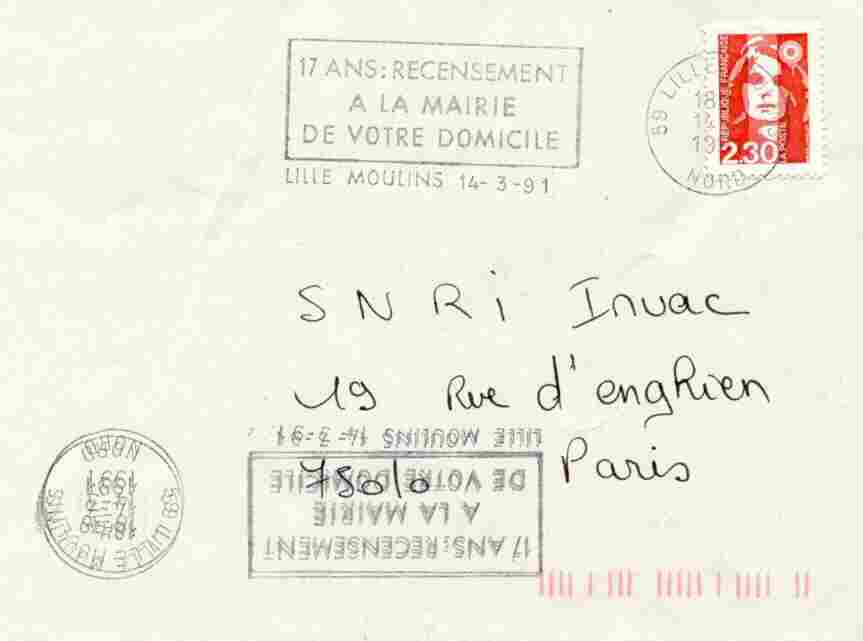 17 ANS: RECENSEMENT
A LA MAIRIE
DE VOTRE DOMICILE
LILLE MOULINS 14-3-91
59 LILLE
18
14
19
NORD
REPUBLIQUE FRANÇAISE
2.30
LA POSTE
SNRi Invac
19 Rue d'enghien
75010 Paris
LILLE MOULINS 14-3-91
DE VOTRE DOMICILE
A LA MAIRIE
17 ANS: RECENSEMENT
59 LILLE MOULINS
1991
NORD